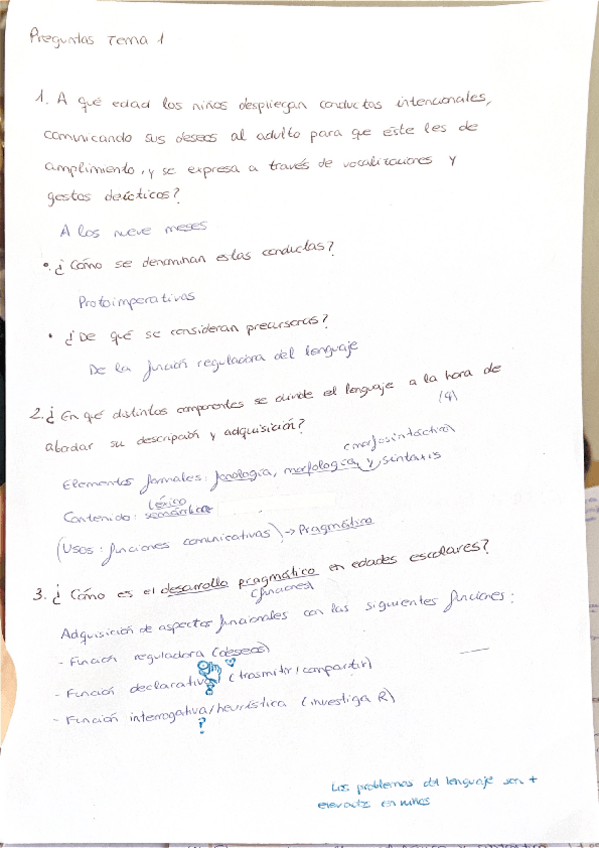 Preguntas Tema 1
1. A qué edad los niños despliegan conductas intencionales,
comunicando sus deseos al adulto para que éste les de
cumplimiento, y se expresa a través de vocalizaciones y
gestos deícticos?
A los nueve meses
• ¿Cómo se denominan estas conductas?
Protoimperativas
• ¿De qué se consideran precursoras?
De la función reguladora del lenguaje
2. ¿En qué distintos componentes se divide el lenguaje a la hora de
abordar su descripción y adquisición? (4)
(morfosintáctica)
Elementos formales: fonología, morfología y sintaxis
léxico
Contenido: semántica
(Usos: funciones comunicativas) → Pragmática
3. ¿Cómo es el desarrollo pragmático en edades escolares?
(funciones)
Adquisición de aspectos funcionales con las siguientes funciones:
- Función reguladora (deseos)
- Función declarativa (trasmitir/compartir)
- Función interrogativa/heurística (investiga R)
?
Los problemas del lenguaje son +
en niños